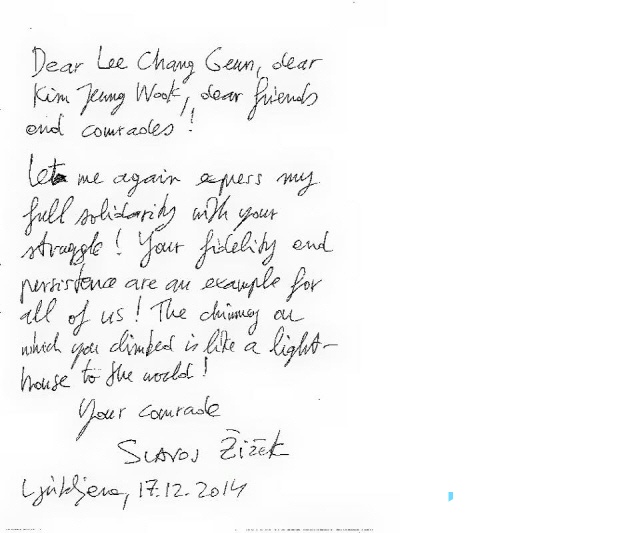 Dear Lee Chang Geun, dear
Kim Jeung Wook, dear friends
and comrades!
Let me again express my
full solidarity with your
struggle! Your fidelity and
persistence are an example for
all of us! The chimney on
which you climbed is like a light-
house to the world!
Your comrade
SLAVOJ ŽIŽEK
Ljubljana, 17.12.2014